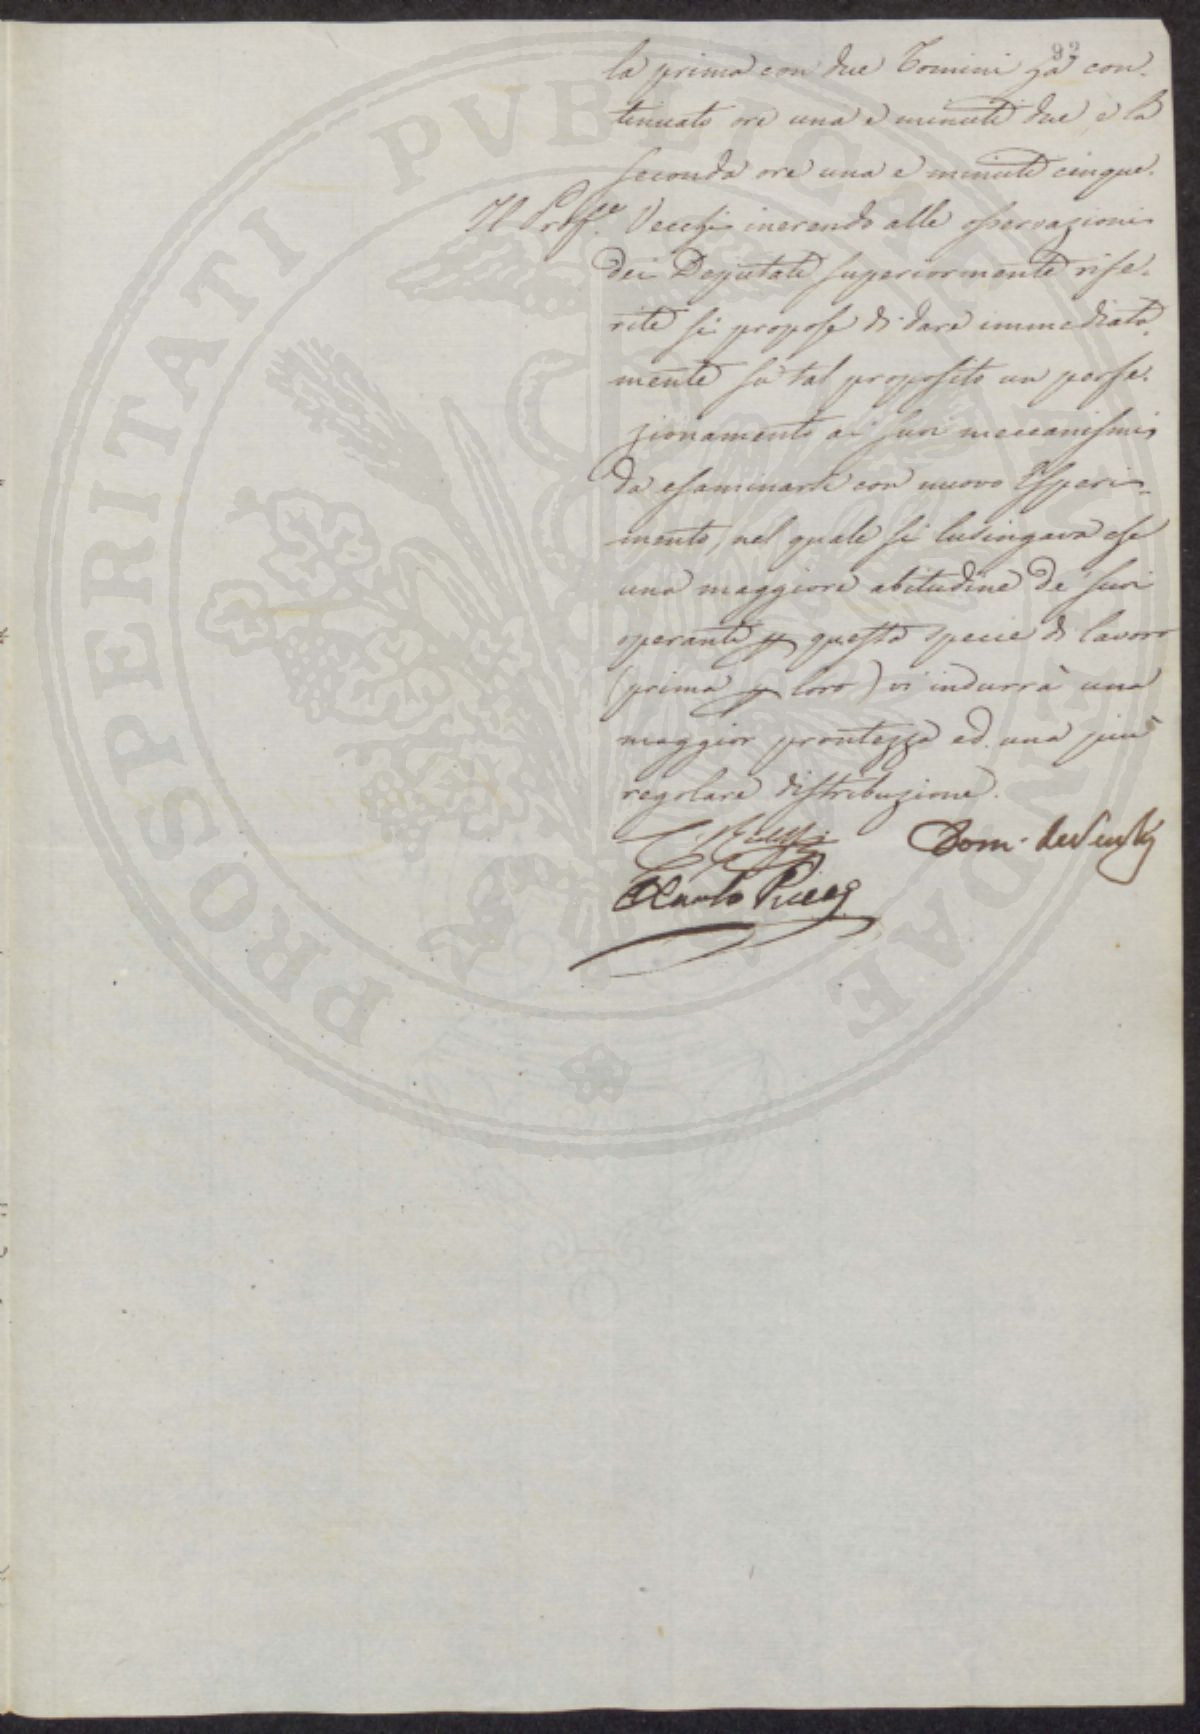 92
la prima con due Tomini ha con-
tinuato ore una e minuti due e la
seconda ore una e minuti cinque.
Il Prof.re Vecchi inerendo alle osservazioni
dei Deputati superiormente rife-
rite si propose di dare immediata-
mente su tal proposito un perfe-
zionamento ai suoi meccanismi
da esaminarsi con nuovo Esperi-
mento, nel quale si lusingava che
una maggiore abitudine de' suoi
operanti p questa specie di lavoro
(prima p loro) vi indurrà una
maggior prontezza ed una più
regolare distribuzione.
Dom.
Carlo
PROSPERITATI PVBLICAE AVGENDAE